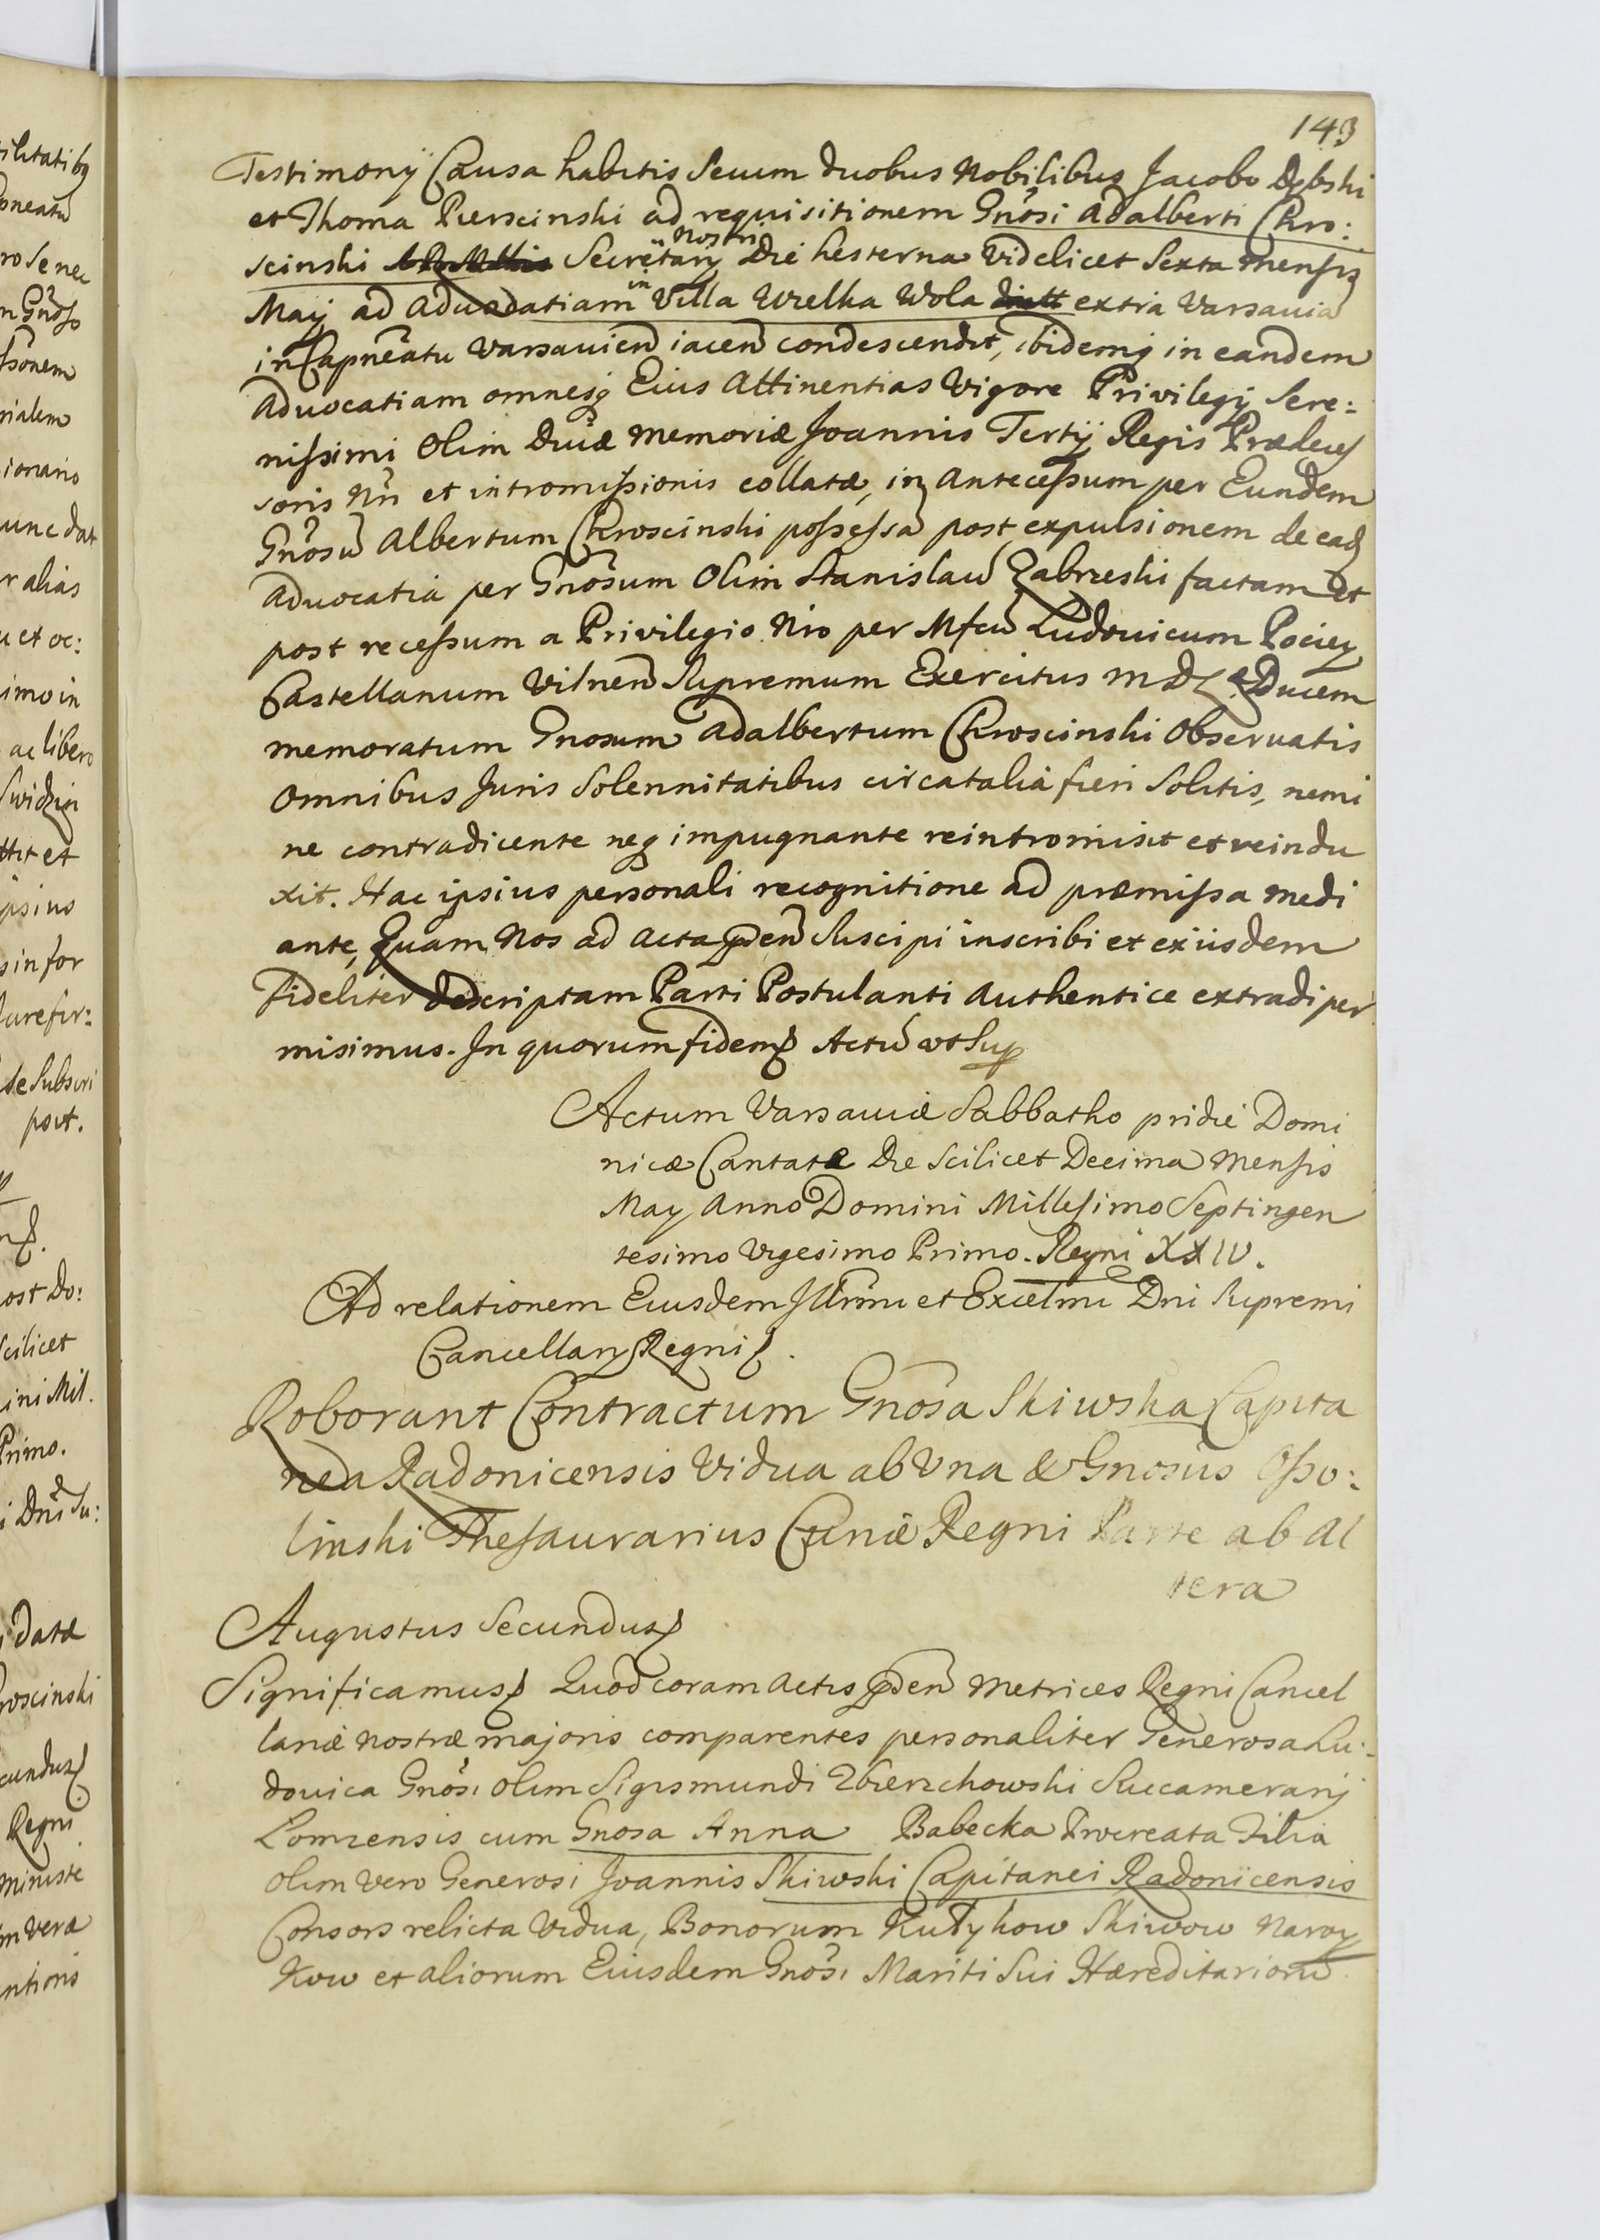 143
Testimonÿ Causa habitis Secum duobus Nobilibus Jacobo Dębski
et Thoma Pierscinski ad requisitionem Gnosi Adalberti Chro:
scinski Secretarÿ Nostri Die hesterna videlicet Sexta mensis
Maÿ ad Aduocatiam in Villa Wielka Wola extra Varsauia
in Capneatu Varsauien iacen condescendit, ibidemq in eandem
Aduocatiam omnesq Eius Attinentias Vigore Privilegÿ Sere:
nissimi Olim Divæ Memoriæ Joannis Tertÿ Regis Prædeces
soris Nri et intromissionis collatæ, in Antecessum per Eundem
Gnosu Albertum Chroscinski possessa post expulsionem de ead
Aduocatia per Gnosum Olim Stanislau Zabrzeski factam et
post recessum a Privilegio Nro per Mfcu Ludouicum Pociey
Castellanum Vilnen Supremum Exercitus M D L Ducem
memoratum Gnosum Adalbertum Chroscinski Obseruatis
Omnibus Juris Solennitatibus circa talia fieri Solitis, nemi
ne contradicente neq impugnante reintromisit et reindu
xit. Hac ipsius personali recognitione ad præmissa medi
ante, Quam Nos ad Acta pden Suscipi inscribi et exiisdem
fideliter descriptam Parti Postulanti Authentice extradi per
misimus. In quorum fidem Actu ut Sup
Actum Varsauiæ Sabbatho pridie Domi
nicæ Cantatæ Die Scilicet Decima Mensis
May Anno Domini Millesimo Septingen
tesimo Vigesimo Primo. Regni XXIV.
Ad relationem Eiusdem Illrmi et Excelmi Dni Supremi
Cancellarÿ Regni
Roborant Contractum Gnosa Skiwska Capita
nea Radonicensis Vidua ab Vna & Gnosus Osso:
linski Thesaurarius Curiæ Regni Parte ab Al
tera
Augustus Secundus
Significamus Quod coram Actis pden Metrices Regni Cancel
lariæ Nostræ majoris comparentes personaliter Generosa Lu:
douica Gnosi olim Sigismundi Zbierzchowski Succamerarÿ
Lomzensis cum Gnosa Anna Babecka Procreata Filia
olim vero Generosi Joannis Skiwski Capitanei Radonicensis
Consors relicta Vidua, Bonorum Kutyłow Skiwow Naroy
Kow et aliorum Eiusdem Gnosi Mariti Sui Hæreditarioru